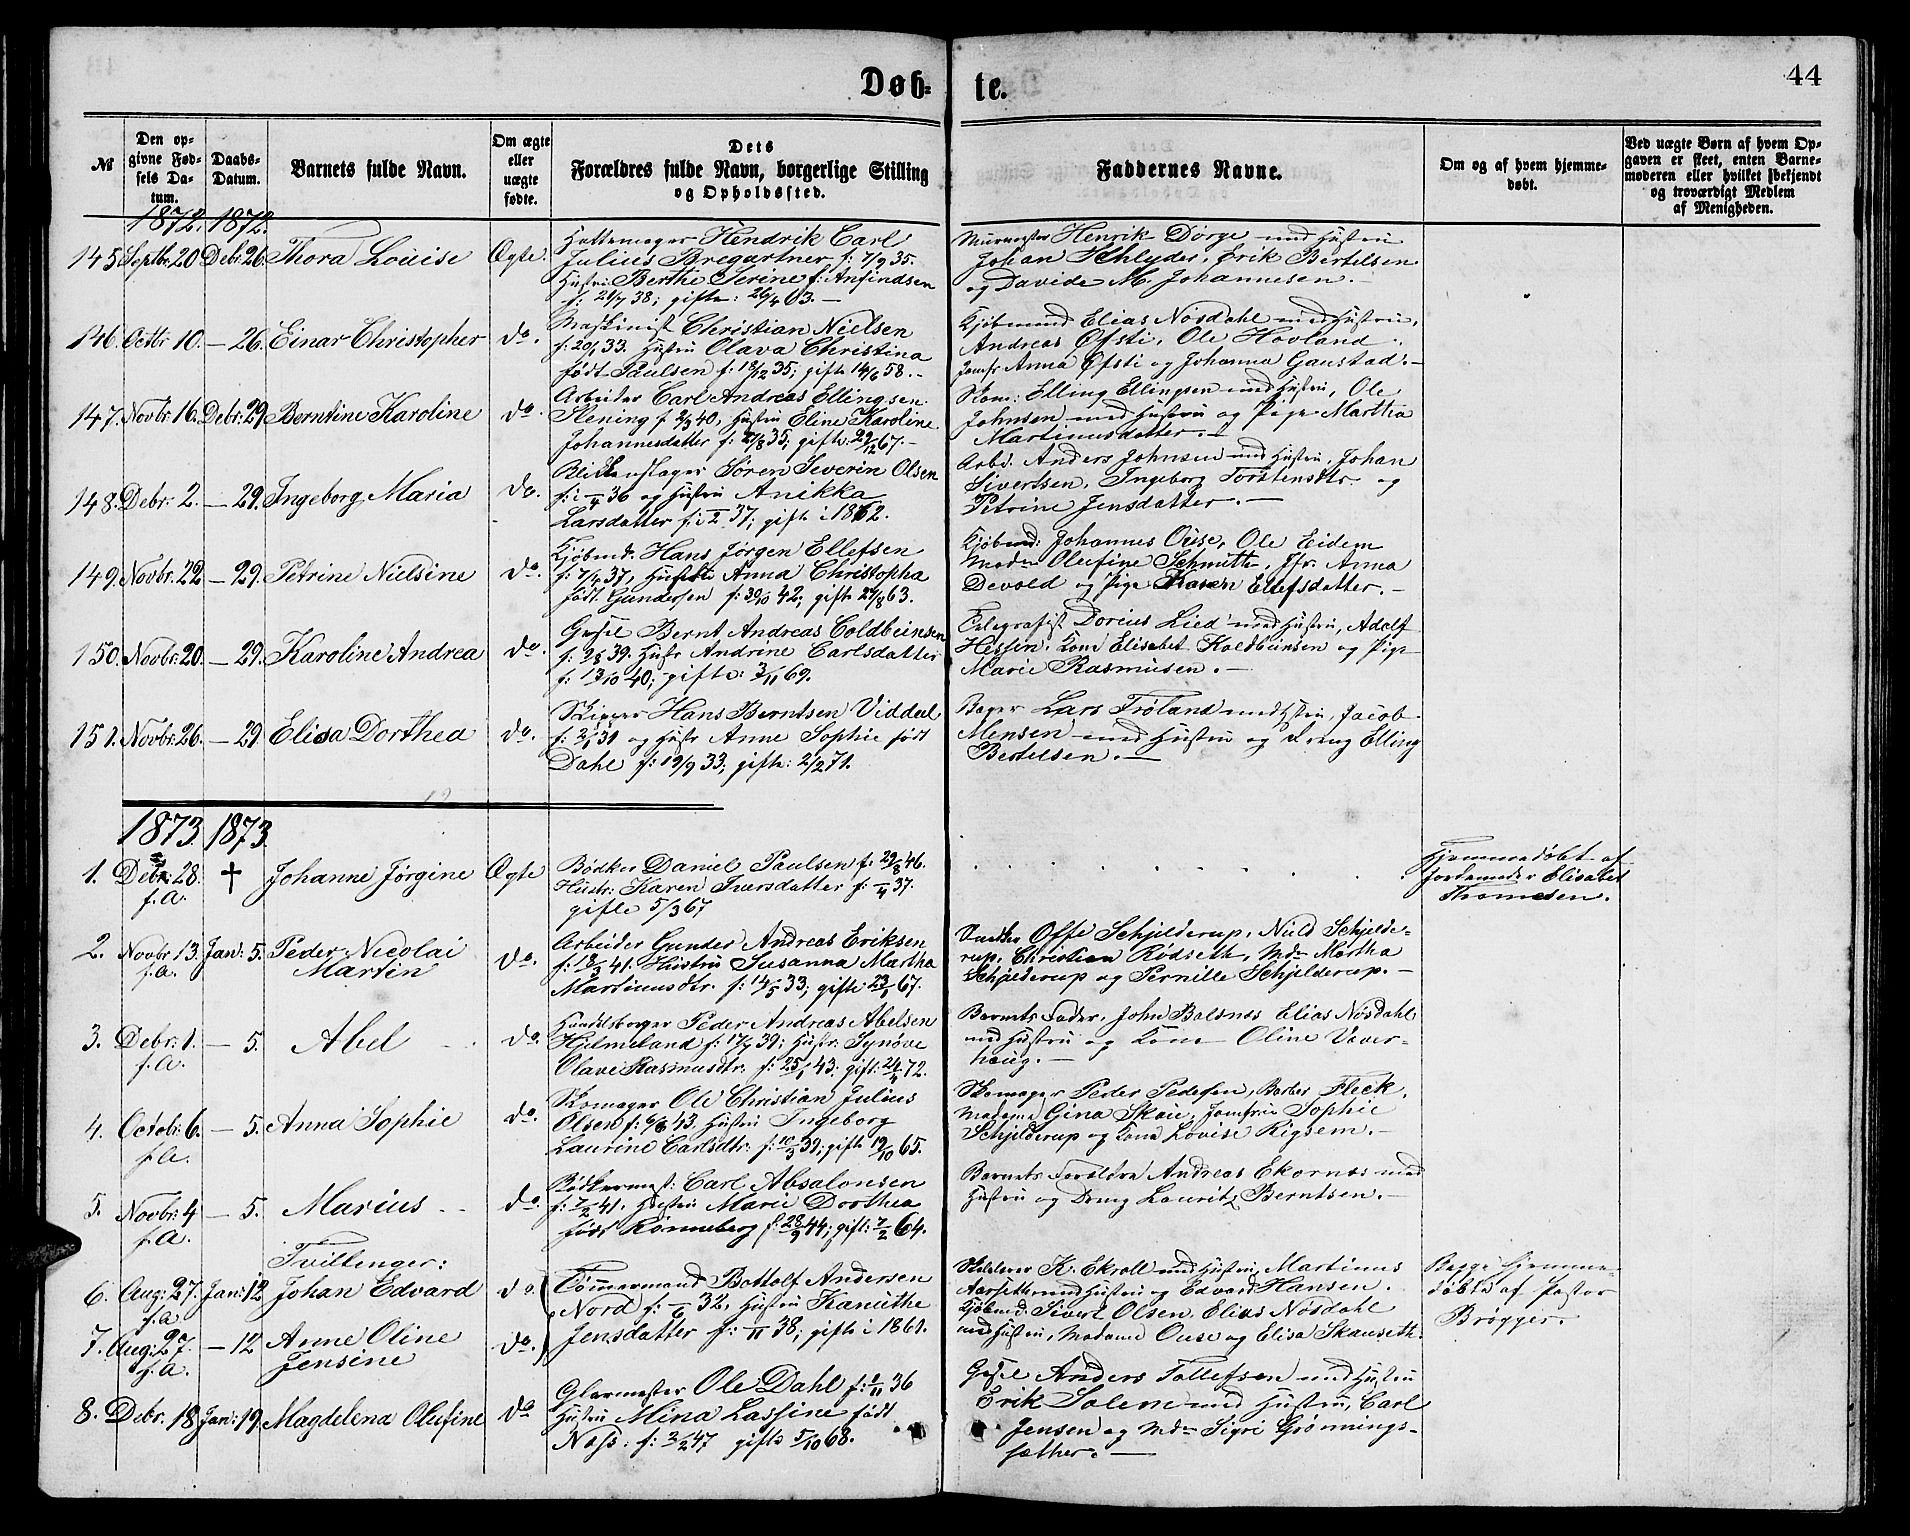 Døb-te.
44
№
Den opgivne Fødsels Datum.
Daabs-Datum.
Barnets fulde Navn.
Om ægte eller uægte fødte.
Dets Forældres fulde Navn, borgerlige Stilling og Opholdssted.
Faddernes Navne.
Om og af hvem hjemmedøbt.
Ved uægte Børn af hvem Opgaven er skeet, enten Barnemoderen eller hvilket bekjendt og troværdigt Medlem af Menigheden.
1872. 1872.
145. Septbr. 20 Debr. 26. Thora Louise Ægte
Hattemager Hendrik Carl
Julius Bregartner f. 7/9 35.
Hustr: Berthe Serine f: Anfindsen
f: 21/7 38; gifte: 26/4 63. —
Murmester Henrik Dörge med Hustru
Johan Schlyder, Erik Bertelsen
og Davide M. Johannesen. —
146. Octbr. 10. — 26. Einar Christopher do.
Maskinist Christian Nielsen
f. 20/1 33. Hustru Olava Christina
født Paulsen f: 18/12 35; gifte 14/6 58. —
Kjøbmand Elias Nøsdahl med Hustru,
Andreas Øfsti, Ole Hovland.
Jomfr Anna Øfsti og Johanna Gaustad. —
147. Novbr. 16. Debr. 29. Berntine Karoline do.
Arbeider Carl Andreas Ellingsen
Flening f 2/3 40, Hustru Eline Karoline
Johannesdatter f: 21/8 35; gifte: 29/12 67. —
Skom: Elling Ellingsen med Hustru, Ole
Johnsen med Hustru og Pige Martha
Martinusdatter. —
148. Debr. 2. — 29. Ingeborg Maria do.
Blikkenslager Søren Severin Olsen
f: i –/4 36 og Hustru Anikka
Larsdatter f: i 2 37; gifte i 1862.
Arbd. Anders Johnsen med Hustru, Johan
Sivertsen, Ingeborg Torstensdtr og
Petrine Jensdatter. —
149. Novbr. 22 — 29. Petrine Nielsine do.
Kjøbmd. Hans Jørgen Ellefsen
f: 7/7 37, Hustru Anna Christopha
født Gundersen f: 30/10 42; gifte 27/8 63.
Kjøbmd: Johannes Ouse, Ole Eidem
Madm Olufine Schmitt, Jfr. Anna
Devold og Pige Karen Ellefsdatter. —
150. Novbr. 20. — 29. Karoline Andrea do.
Gusel Bernt Andreas Coldbeinsen
f: 2/8 39. Hustr Andrine Carlsdatter
f: 13/10 40; gifte: 3/11 69.
Telegrafist Dorius Lied med Hustru, Adolf
Hessen. Kone Elisabet Koldbeinsen og Pige
Marie Rasmusen. —
151. Novbr. 26. — 29. Elisa Dorthea do.
Skipper Hans Berntsen Viddal
f: 2/1 31 og Hustr Anne Sophie født
Dahl f: 19/9 33; gifte: 2/2 71.
Bager Lars Frøland med Hstru, Jacob
Mensen med Hustru og Dreng Elling
Bertelsen. —
1873. 1873.
1. Debr. 28. f.A. † Johanne Jørgine Ægte
Bødker Daniel Paulsen f: 29/8 46.
Hustr: Karen Iversdatter f: –/4 37.
gifte 5/3 67
Hjemmedøbt af
Jordemoder Elisabet
Thomesen.
2. Novbr 13. f.A. Jan: 5. Peder Nicolai
Martin do.
Arbeider Gunder Andreas Eriksen
f: 18/3 41. Hustru Susanna Martha
Martinusdtr. f: 14/5 33; gifte: 23/1 67.
Offe Schjelderup, Nils Schjelde-
rup, Christian Rødseth, Mdm Martha
Schjelderup og Pernille Schjelderup. —
3. Debr. 1. f.A. — 5. Abel do.
Handelsborger Peder Andreas Abelsen
Hjelmeland f: 17/7 39; Hustr: Synøve
Olave Rasmusdtr. f: 25/1 43; gift: 24/4 72.
Barnets Fader, John Balsnes, Elias Nøsdahl
med Hustru og Kone Oline Vever-
haug. —
4. Octob: 6. f.A. — 5. Anna Sophie do.
Skomager Ole Christian Julius
Olsen f: 6/6 43. Hustru Ingeborg
Laurine Carlsdtr. f: 10/3 39; gifte 19/10 65.
Skomager Peder Pedersen, Barber Fleck,
Madame Gina Skaie, Jomfru Sophie
Schjelderup og Kone Lovise Rigsem. —
5. Novbr: 4 f.A. — 5. Marius do.
Bødkermest: Carl Absalonsen
f: 7/2 41. Hustru Marie Dorthea
født Rønneberg f: 28/9 44; gift: 7/2 64.
Barnets Forældre Andreas Ekornæs med
Hustru og Dreng Lauritz Berntsen. —
Tvillenger:
6. Aug: 27. f.A. Jan: 12 Johan Edvard do.
7. Aug: 27. f.A. — 12 Anne Oline
Jensine do.
Tømmermand Bottolf Andersen
Nord f: –/6 32, Hustru Kanuthe
Jensdatter f: –/11 38; gifte i 1861.
K. Ekroll med Hustru, Martinus
Aarsether med Hustru og Edvard Hansen.
Kjøbmd: Sivert Olsen, Elias Nøsdahl
med Hustru, Madame Ouse og Elisa Skauseth.
Begge hjemme-
døbte af Pastor
Brøgger.
8. Debr. 18 Jan: 19. Magdelena Olufine do
Glarmester Ole Dahl f: 1/11 36
Hustru Mina Lassine født
Næss: f: 2/2 47 gifte 5/10 68.
Gesel Anders Tollefsen med Hustru
Erik Solem med Hustru, Carl
Jensen og Mdm Sigri Grønnings-
sæther. —